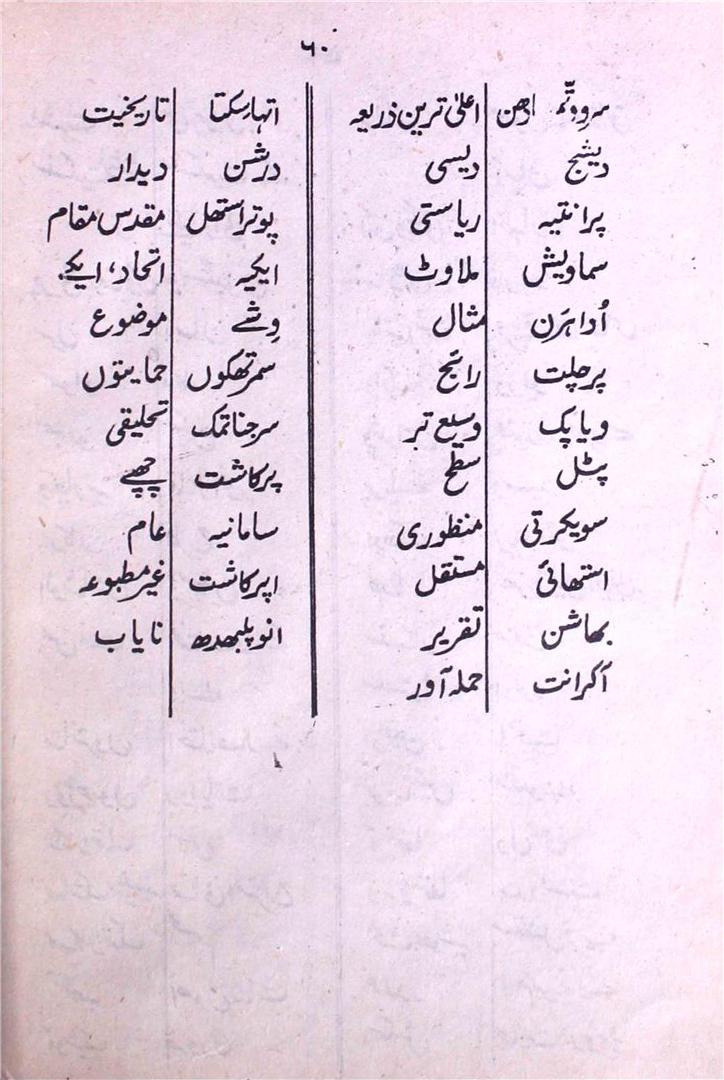 ۶۰
سروتّم ادھن اعلیٰ ترین ذریعہ
دیشج دیسی
پرانتیہ ریاستی
سماویش ملاوٹ
اُداہَرن مثال
پرچلت رائج
ویاپک وسیع تر
پٹل سطح
سویکرتی منظوری
استھائی مستقل
بھاشن تقریر
آکرانت حملہ آور
اتہاسکتا تاریخیت
درشن دیدار
پوتراستھل مقدس مقام
ایکیہ اتحاد، ایکے
وِشے موضوع
سمرتھکوں حمایتوں
سرجناتمک تخلیقی
پرکاشت چھپے
سامانیہ عام
اپرکاشت غیر مطبوعہ
انوپلبھدھ نایاب